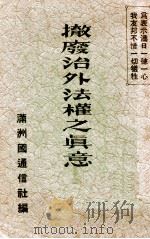 為表示滿日一德一心
我友邦不惜一切犧牲
撤廢治外法權之眞意
滿洲國通信社編